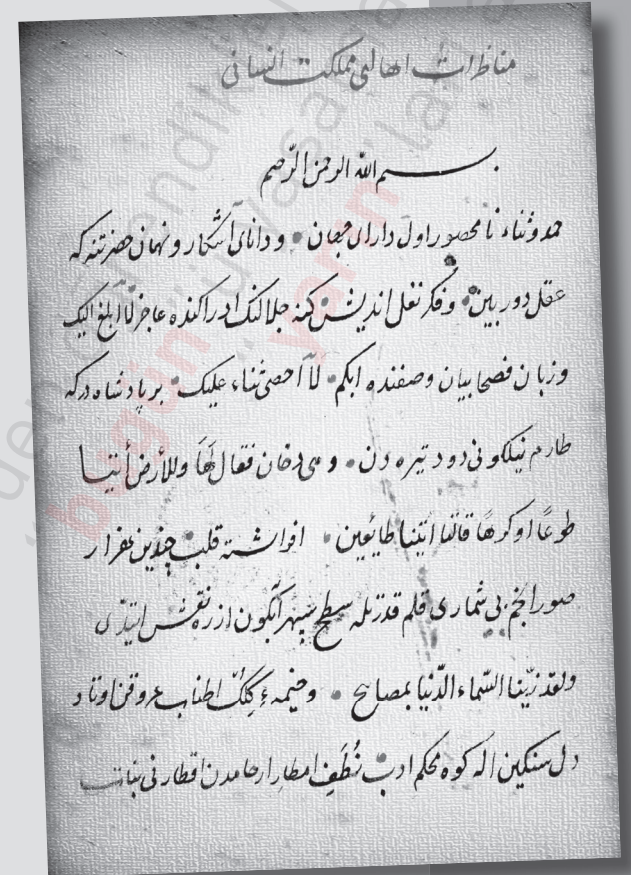 مناظرات اهالئ مملكت انسانی
بسم الله الرحمن الرحيم
حمد و ثناء نا محصور اول دارای جهان و دانای آشكار و نهان حضرتنه كه
عقل دوربين و فكر نغل انديش كنه جلالنك ادراكنده عاجز لا ابلغ اليك
و زبان فصحا بيان وصفنده ابكم لا احصى ثناء عليك بر پادشاه دركه
طارم نيلكونی دود تيره دن وهی دخان فقال لها وللأرض أئتيا
طوعًا او كرهًا قالتا اتينا طايعين افراشته قلب چندين هزار
صور انجم بی شماری قلم قدرتله سطح سپهر آبكون ازره نقش ايتدی
ولقد زيّنا السّماء الدّنيا بمصابيح و خيمهء اطناب عروقن اوتاد
دل سنكين اله كوه محكم ادب نُطَفِ امطار ارحامدن اقطار نی نبات
bugün
yarın